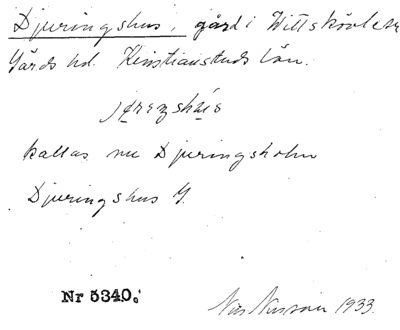 Djuringshus, gård i Wittskövle sn
Gärds hd. Kristianstads län.
kallas nu Djuringsholm
Djuringshus G.
Nr 5340.
Nils Nilsson 1933.